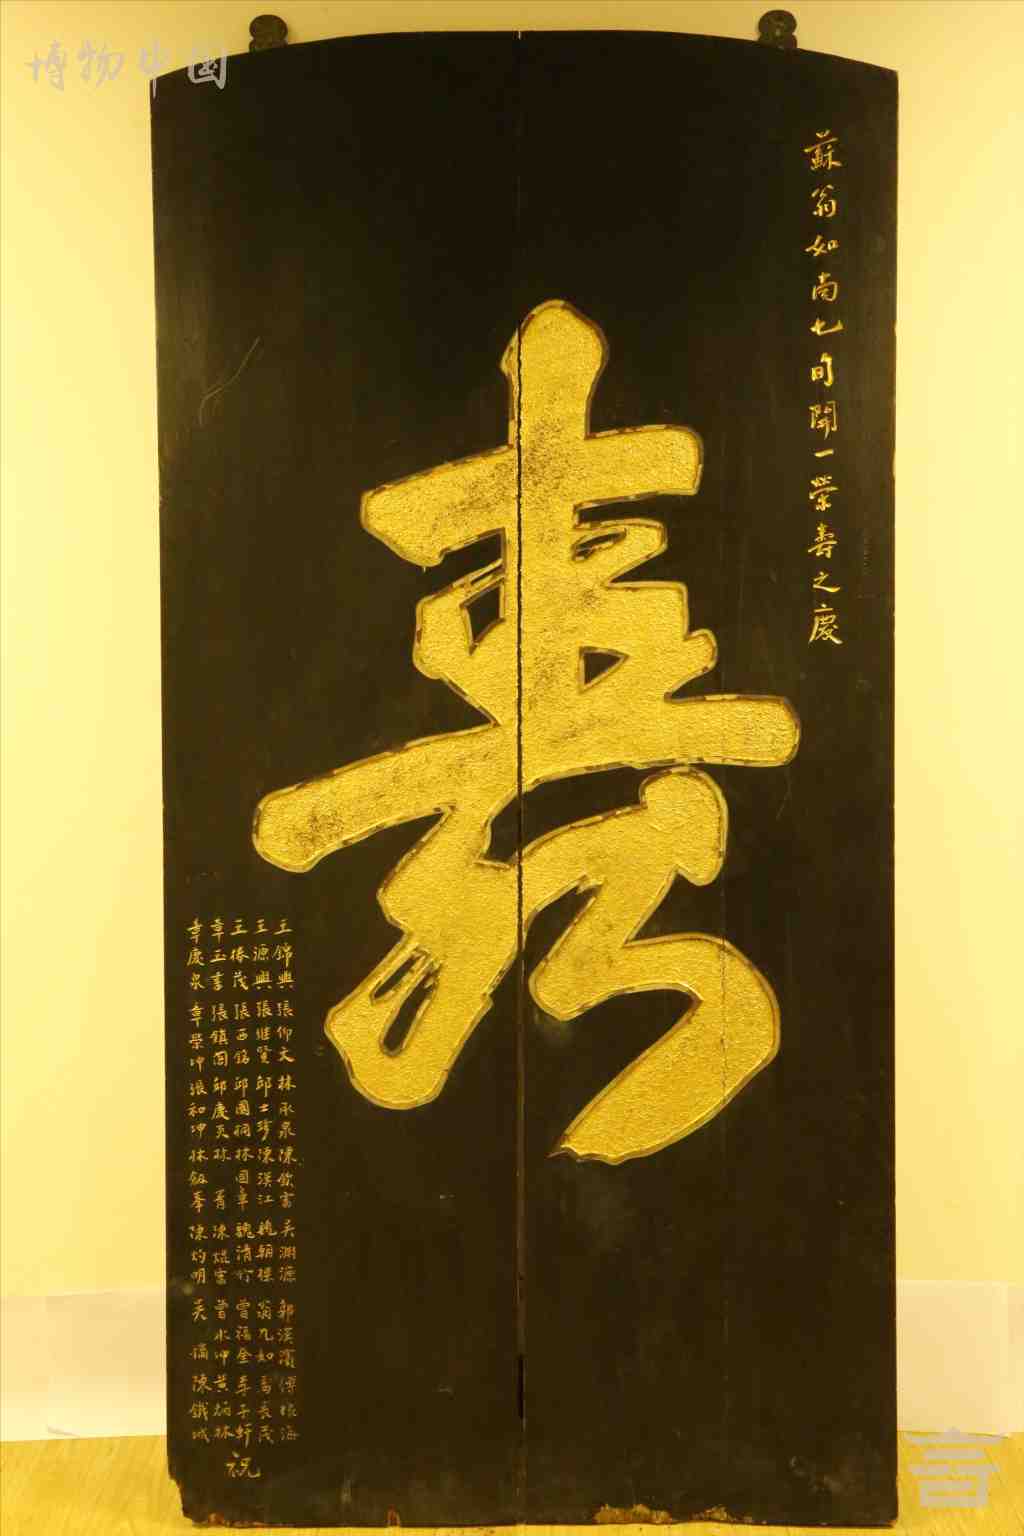 博物中国
蘇翁如南七旬開一榮壽之慶
壽
王錦興 張仰文 林承泉 陳欽富 吴淵源 郭漢濱 傅振海
王源興 張維賢 邱士琦 陳漢江 魏朝樑 翁九如 高長茂
王椿茂 張西銘 邱國桐 林国章 魏清竹 曾福奎 李子軒
章玉李 張鎮国 邱慶天 林 胥 陳焜富 曾水坤 黄炳林
章慶泉 章榮坤 張和坤 林釼峯 陳灼明 吴 鏑 陳鐵城
祝